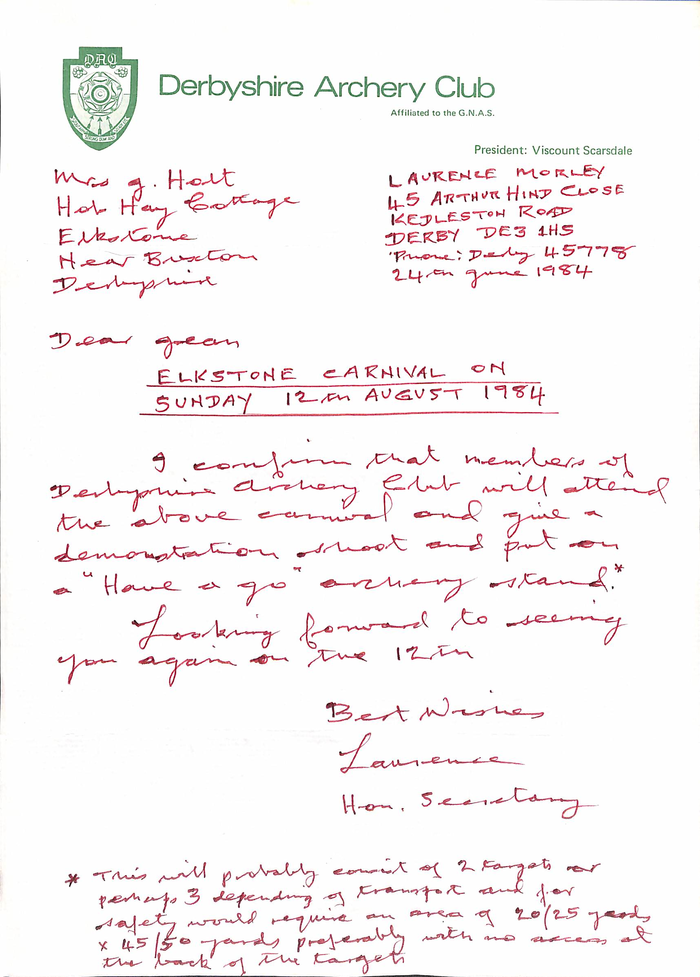 DAC
Derbyshire Archery Club
Affiliated to the G.N.A.S.
President: Viscount Scarsdale
Mrs J. Holt
Hob Hay Cottage
Elkstone
Near Buxton
Derbyshire
LAURENCE MORLEY
45 ARTHUR HIND CLOSE
KEDLESTON ROAD
DERBY DE3 1HS
Phone: Derby 45778
24th June 1984
Dear Jean
ELKSTONE CARNIVAL ON
SUNDAY 12th AUGUST 1984
I confirm that members of
Derbyshire Archery Club will attend
the above carnival and give a
demonstration shoot and put on
a "Have a go" archery stand.*
Looking forward to seeing
you again on the 12th
Best Wishes
Laurence
Hon. Secretary
* This will probably consist of 2 targets or
perhaps 3 depending of transport and for
safety would require an area of 20/25 yards
x 45/50 yards preferably with no access at
the back of the targets